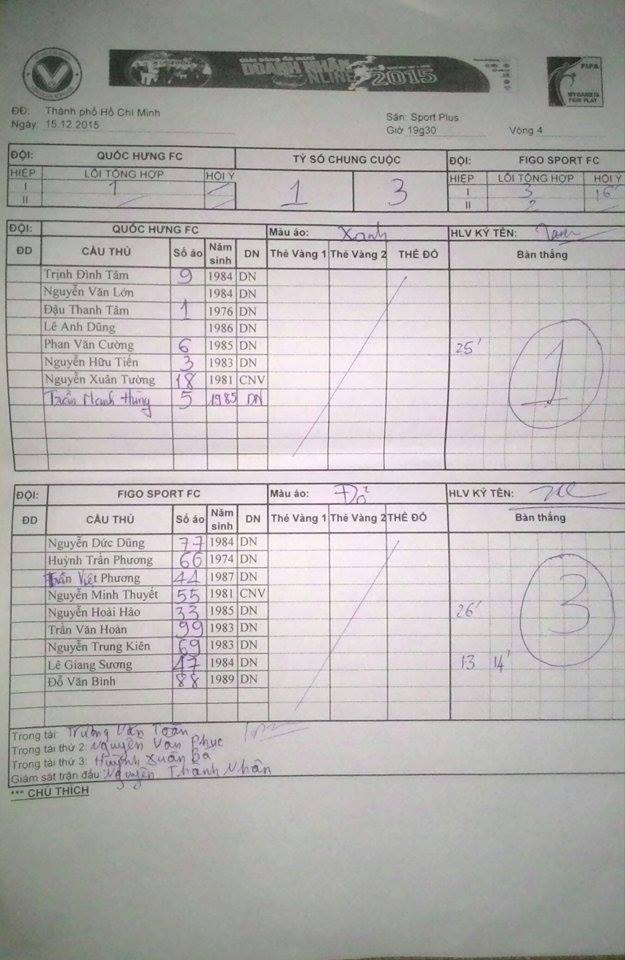 Giải bóng đá mini
DOANH NHÂN
ONLINE 2015
FIFA
MY GAME IS
FAIR PLAY
ĐĐ: Thành phố Hồ Chí Minh
Ngày: 15.12.2015
Sân: Sport Plus
Giờ 19g30 Vòng 4
ĐỘI: QUỐC HƯNG FC TỶ SỐ CHUNG CUỘC ĐỘI: FIGO SPORT FC
HIỆP LỖI TỔNG HỢP HỘI Ý 1 3 HIỆP LỖI TỔNG HỢP HỘI Ý
I 1 I 3 16'
II II 2
ĐỘI: QUỐC HƯNG FC Màu áo: Xanh HLV KÝ TÊN:
ĐD CẦU THỦ Số áo Năm sinh DN Thẻ Vàng 1 Thẻ Vàng 2 THẺ ĐỎ Bàn thắng
Trịnh Đình Tâm 9 1984 DN
Nguyễn Văn Lớn 1984 DN
Đậu Thanh Tâm 1 1976 DN
Lê Anh Dũng 1986 DN
Phan Văn Cường 6 1985 DN 25' 1
Nguyễn Hữu Tiến 3 1983 DN
Nguyễn Xuân Tường 18 1981 CNV
Trần Mạnh Hùng 5 1985 DN
ĐỘI: FIGO SPORT FC Màu áo: Đỏ HLV KÝ TÊN:
ĐD CẦU THỦ Số áo Năm sinh DN Thẻ Vàng 1 Thẻ Vàng 2 THẺ ĐỎ Bàn thắng
Nguyễn Đức Dũng 77 1984 DN
Huỳnh Trần Phương 66 1974 DN
Trần Việt Phương 44 1987 DN
Nguyễn Minh Thuyết 55 1981 CNV 3
Nguyễn Hoài Hảo 33 1985 DN 26'
Trần Văn Hoàn 99 1983 DN
Nguyễn Trung Kiên 69 1983 DN
Lê Giang Sương 17 1984 DN 13 14'
Đỗ Văn Bình 88 1989 DN
Trọng tài: Trương Văn Toản
Trọng tài thứ 2: Nguyễn Văn Phục
Trọng tài thứ 3: Huỳnh Xuân Ba
Giám sát trận đấu: Nguyễn Thành Nhân
*** CHÚ THÍCH